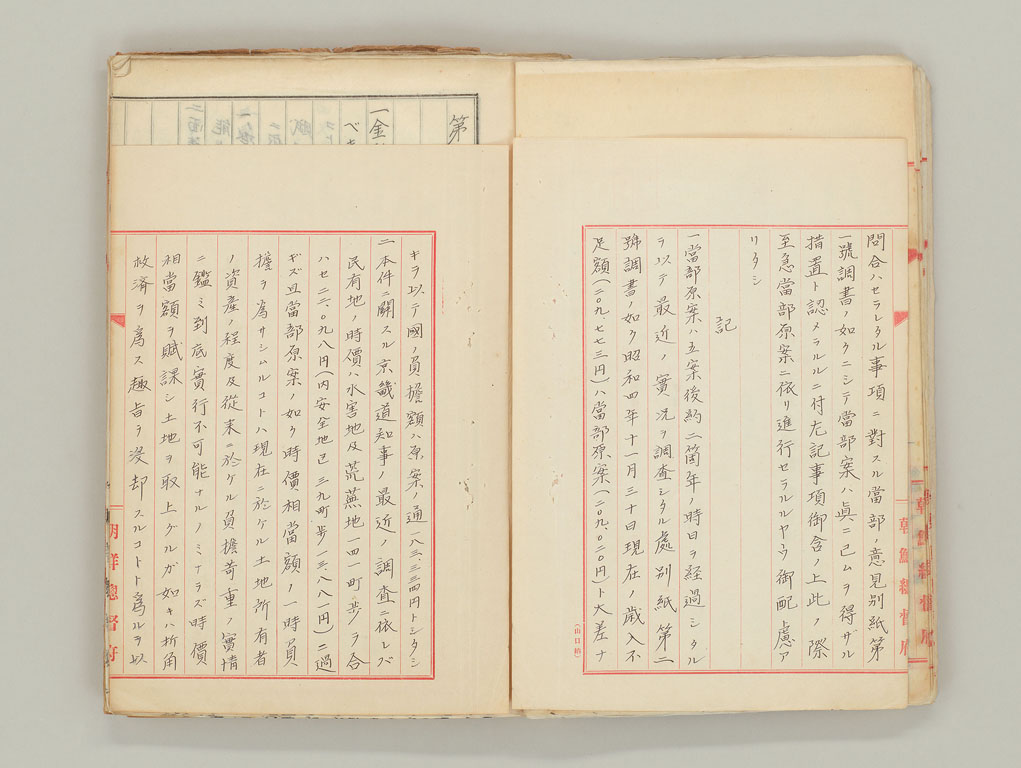 問合ハセラレタル事項ニ對スル當部ノ意見別紙第
一號調書ノ如クニシテ當部案ハ眞ニ已ムヲ得ザル
措置ト認メラルルニ付左記事項御含ノ上此ノ際
至急當部原案ニ依リ進行セラルルヤウ御配慮ア
リタシ
記
一當部原案ハ立案後約二箇年ノ時日ヲ経過シタル
ヲ以テ最近ノ實況ヲ調査シタル處別紙第二
號調書ノ如ク昭和四年十一月三十日現在ノ歳入不
足額(二〇九、七七三円)ハ當部原案(二〇九、〇二〇円)ト大差ナ
キヲ以テ國ノ負擔額ハ原案ノ通一八三、三三四円トシタシ
二本件ニ關スル京畿道知事ノ最近ノ調査ニ依レバ
民有地ノ時價ハ水害地及荒蕪地一四一町歩ヲ合
ハセ二二、〇九八円(内安全地已三九町歩一三、八八一円)ニ過
ギズ且當部原案ノ如ク時價相當額ノ一時負
擔ヲ為サシムルコトハ現在ニ於ケル土地所有者
ノ資産ノ程度及從来ニ於ケル負擔苛重ノ實情
ニ鑑ミ到底實行不可能ナルノミナラズ時價
相當額ヲ賦課シ土地ヲ取上グルガ如キハ折角
救済ヲ為ス趣旨ヲ没却スルコトト為ルヲ以
朝鮮總督府
(山口納)
朝鮮總督府
第
一金
べキ